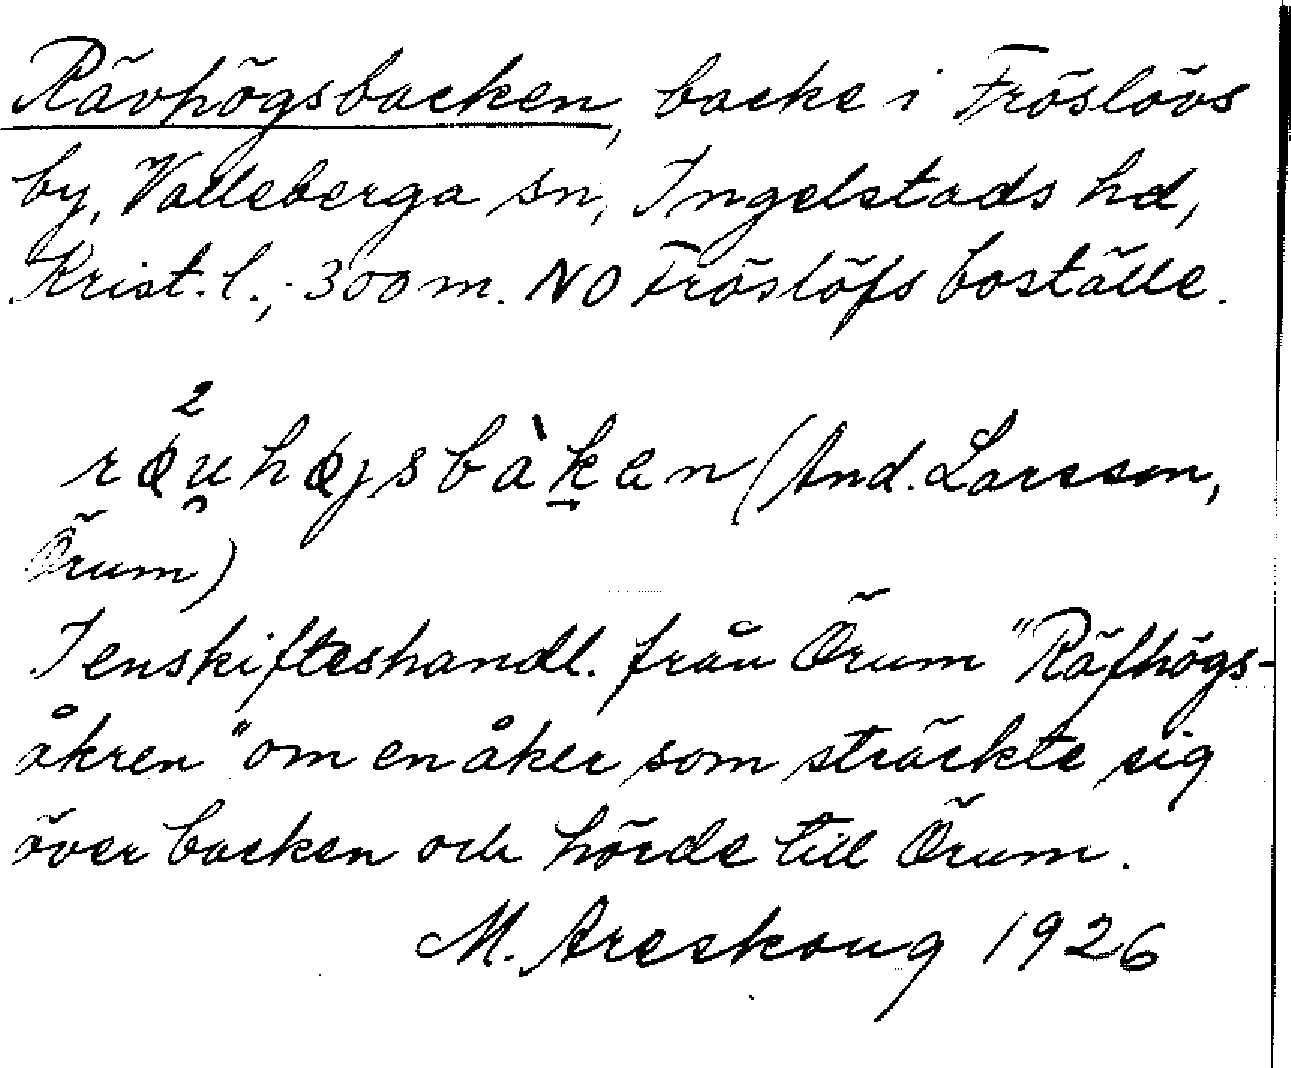 Rävhögsbacken, backe i Fröslövs
by, Valleberga sn, Ingelstads hd,
Krist. l., 300 m. NO Fröslöfs boställe.
2
røu̯højsbàk̠en (And. Larsson,
Örum)
I enskifteshandl. från Örum "Räfhögs-
åkren" om en åker som sträckte sig
över backen och hörde till Örum.
M. Areskoug 1926